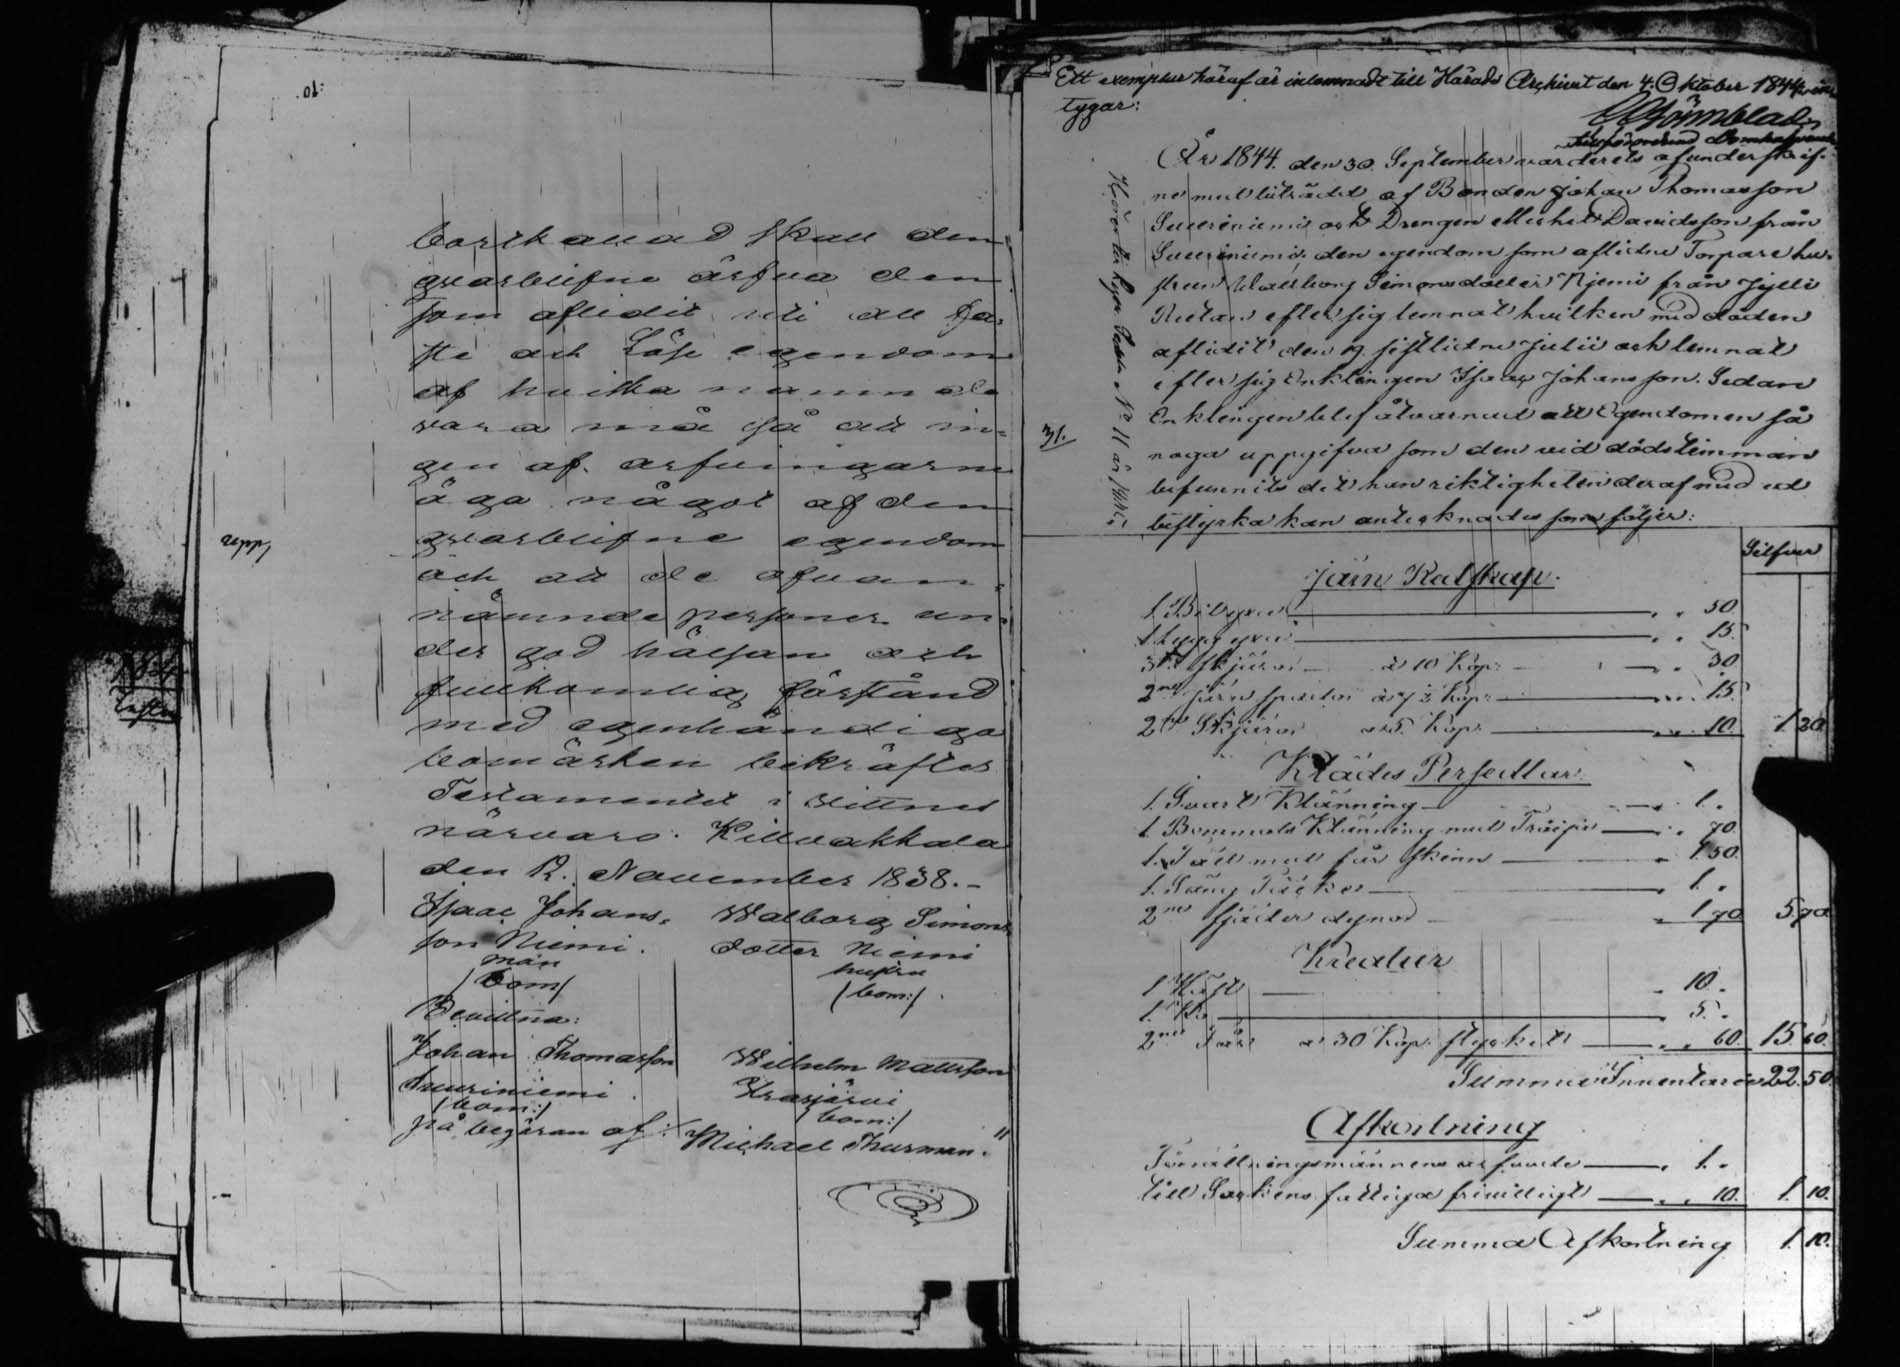 :01.
bortkallad skall den
qvarblifne ärfva den
som aflidit uti all fa-
ste och Löse egendom
af hvilka namn de
vara må på att in-
gen af arfvingarne
äga något af den
qvarblifne egendom
och att de ofvan-
nämnde personer un-
der god hälsan och
fullkomlig förstånd
med egenhändiga
bomärken bekräftes
Testamentet i vittnes
närvaro. Killvakkala
den 12. November 1838.-
Isaac Johans- Walborg Simons
son Niemi. dotter Niemi
man hustru
/bom/ /bom:/.
Bevittna:
Johan Thomasson Wilhelm Mattsson
Suuriniemi
/bom:/ /bom:/
på begäran af: Michael Thurman."
Ett exemplar häraf är inlemnadt till Härads Archivet den 4. Oktober 1844,
tygar:
År 1844. den 30. September värderets af underskrif-
ne med biträdet af Bonden Johan Thomasson
Suuriniemi och Drengen Michel Davidsson från
Suuriniemi den egendom som aflidne Torpare hu-
strun Walborg Simonsdotter Njemi från Jylli
efter sig lemnat hvilken med döden
aflidit den 19. sistlidne Julii och lemnat
efter sig Enklingen Isaac Johansson. Sedan
Enklingen blef åtvarnad att Egendomen så
noga uppgifva som den vid dödstimman
befunnits det han riktigheten deraf med ed
bestyrka kan antecknades som följer:
31.
Silfver
Järn Kalskap.
1. Bilyxa " " 50.
1. yxa " " 15.
3. skjäror à 10 Kop: " " 30
2ne järn spador à 7½ Kop: " " 15.
2ne Skjäror à 5. Kop: " " 10. 1 20
Klädes Persedlar.
1. Svart Klänning " 1. "
1. Bommuls Klänning med Tröija " " 70.
1. Fäll med får skinn " 1. 50.
1. Säng Täcke " 1. "
2ne fjäder dynor " 1 70 5. 70
Kreatur
1 Häst " 10. "
1. Ko " 5. "
2ne Får à 30 Kop: stycket " " 60. 15. 60.
Summa Inventarie 22. 50.
Afkortning
Förrättningsmännens arfvode " 1. "
till Sockens fattiga frivilligt " " 10. 1. 10.
Summa Afkortning 1. 10.